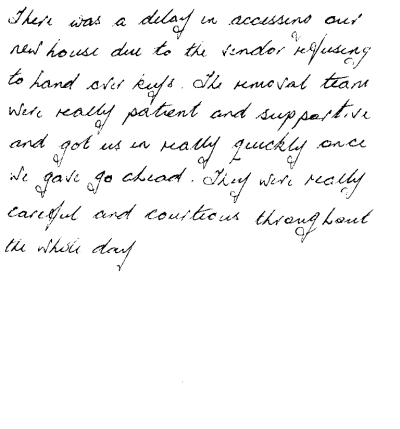 There was a delay in accessing our
new house due to the vendor refusing
to hand over keys. The removal team
were really patient and supportive
and got us in really quickly once
we gave go ahead. They were really
careful and courteous throughout
the whole day